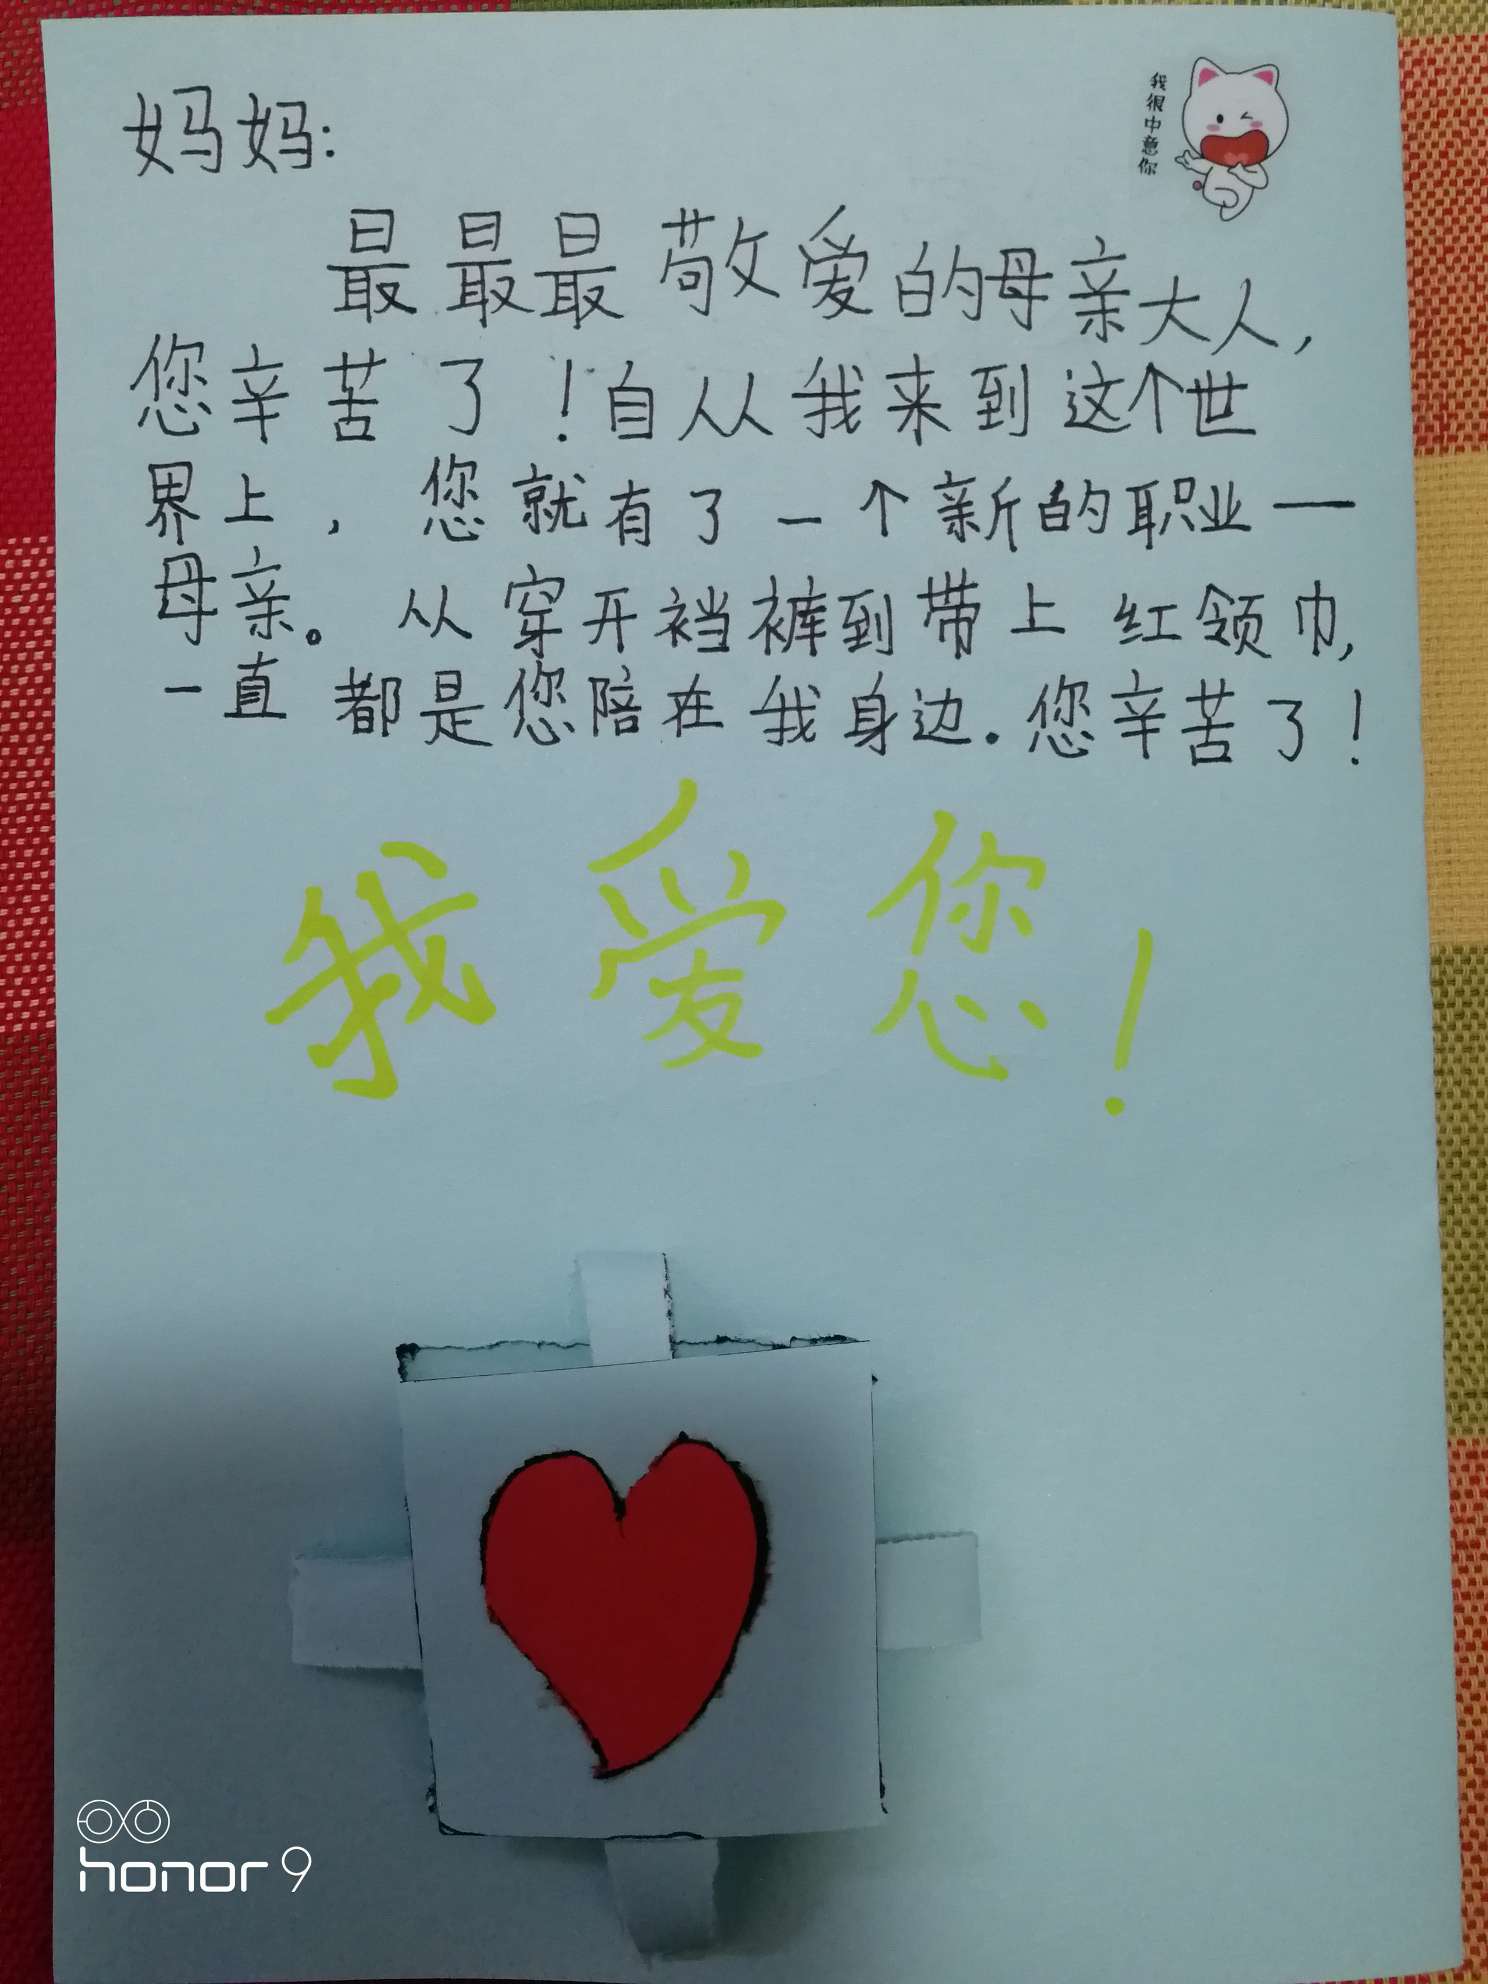 我很中意你
妈妈:
最最最敬爱的母亲大人,
您辛苦了!自从我来到这个世
界上,您就有了一个新的职业一
母亲。从穿开裆裤到带上红领巾,
一直都是您陪在我身边。您辛苦了!
我爱您!
honor 9